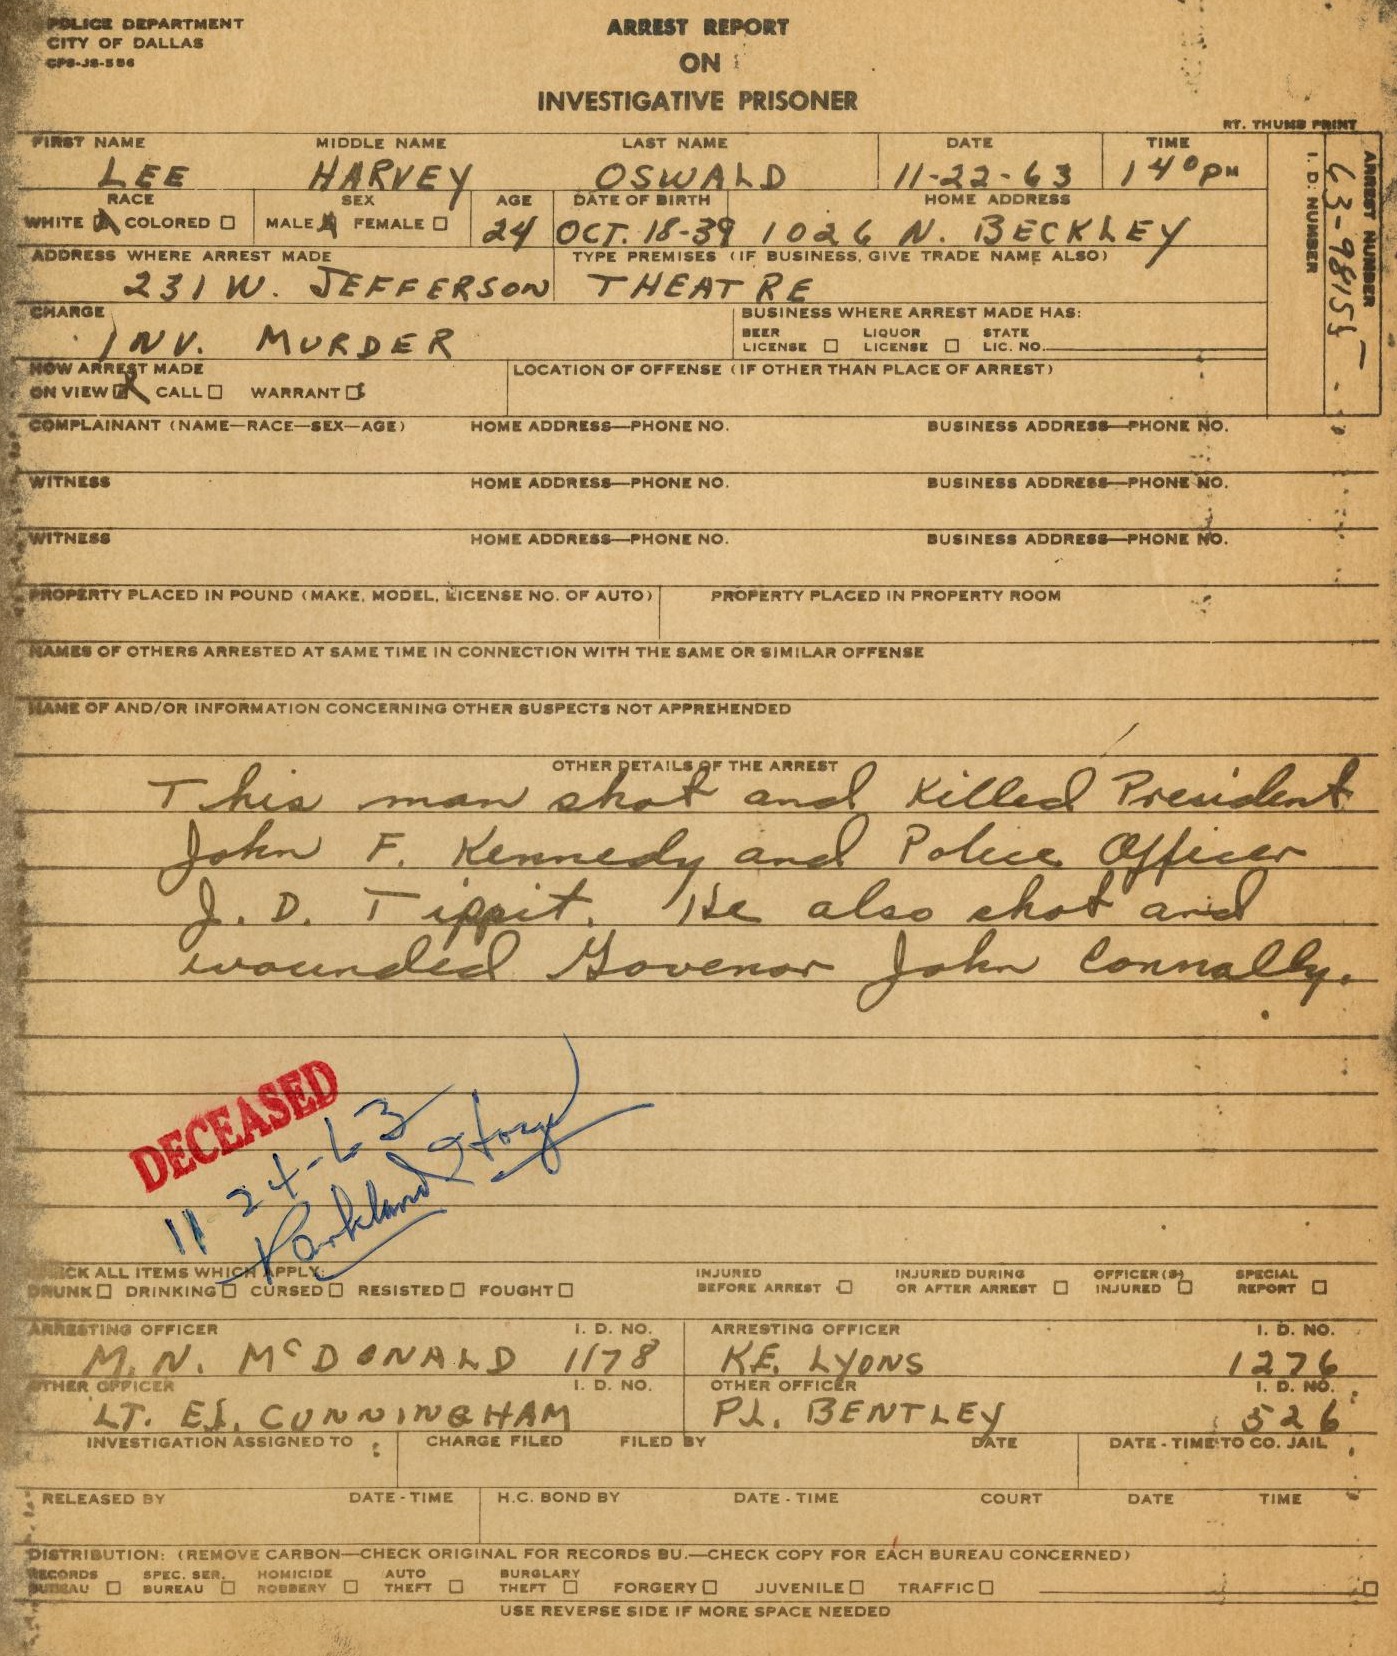 POLICE DEPARTMENT
CITY OF DALLAS
CPS-JS-586
ARREST REPORT
ON
INVESTIGATIVE PRISONER
RT. THUMB PRINT
FIRST NAME MIDDLE NAME LAST NAME DATE TIME
LEE HARVEY OSWALD 11-22-63 1 40 PM
ARREST NUMBER 63-98155
I. D. NUMBER
RACE SEX AGE DATE OF BIRTH HOME ADDRESS
WHITE COLORED MALE FEMALE 24 OCT. 18-39 1026 N. BECKLEY
ADDRESS WHERE ARREST MADE TYPE PREMISES (IF BUSINESS, GIVE TRADE NAME ALSO)
231 W. JEFFERSON THEATRE
CHARGE BUSINESS WHERE ARREST MADE HAS:
INV. MURDER BEER LICENSE LIQUOR LICENSE STATE LIC. NO.
HOW ARREST MADE LOCATION OF OFFENSE (IF OTHER THAN PLACE OF ARREST)
ON VIEW CALL WARRANT
COMPLAINANT (NAME—RACE—SEX—AGE) HOME ADDRESS—PHONE NO. BUSINESS ADDRESS—PHONE NO.
WITNESS HOME ADDRESS—PHONE NO. BUSINESS ADDRESS—PHONE NO.
WITNESS HOME ADDRESS—PHONE NO. BUSINESS ADDRESS—PHONE NO.
PROPERTY PLACED IN POUND (MAKE, MODEL, LICENSE NO. OF AUTO) PROPERTY PLACED IN PROPERTY ROOM
NAMES OF OTHERS ARRESTED AT SAME TIME IN CONNECTION WITH THE SAME OR SIMILAR OFFENSE
NAME OF AND/OR INFORMATION CONCERNING OTHER SUSPECTS NOT APPREHENDED
OTHER DETAILS OF THE ARREST
This man shot and killed President
John F. Kennedy and Police Officer
J. D. Tippit. He also shot and
wounded Govenor John Connally.
DECEASED
11-24-63
Parkland Hosp
CHECK ALL ITEMS WHICH APPLY:
DRUNK DRINKING CURSED RESISTED FOUGHT INJURED BEFORE ARREST INJURED DURING OR AFTER ARREST OFFICER(S) INJURED SPECIAL REPORT
ARRESTING OFFICER I. D. NO. ARRESTING OFFICER I. D. NO.
M. N. McDONALD 1178 K.E. LYONS 1276
OTHER OFFICER I. D. NO. OTHER OFFICER I. D. NO.
LT. E.L. CUNNINGHAM P.L. BENTLEY 526
INVESTIGATION ASSIGNED TO CHARGE FILED FILED BY DATE DATE - TIME TO CO. JAIL
RELEASED BY DATE - TIME H.C. BOND BY DATE - TIME COURT DATE TIME
DISTRIBUTION: (REMOVE CARBON—CHECK ORIGINAL FOR RECORDS BU.—CHECK COPY FOR EACH BUREAU CONCERNED)
RECORDS BUREAU SPEC. SER. BUREAU HOMICIDE ROBBERY AUTO THEFT BURGLARY THEFT FORGERY JUVENILE TRAFFIC
USE REVERSE SIDE IF MORE SPACE NEEDED